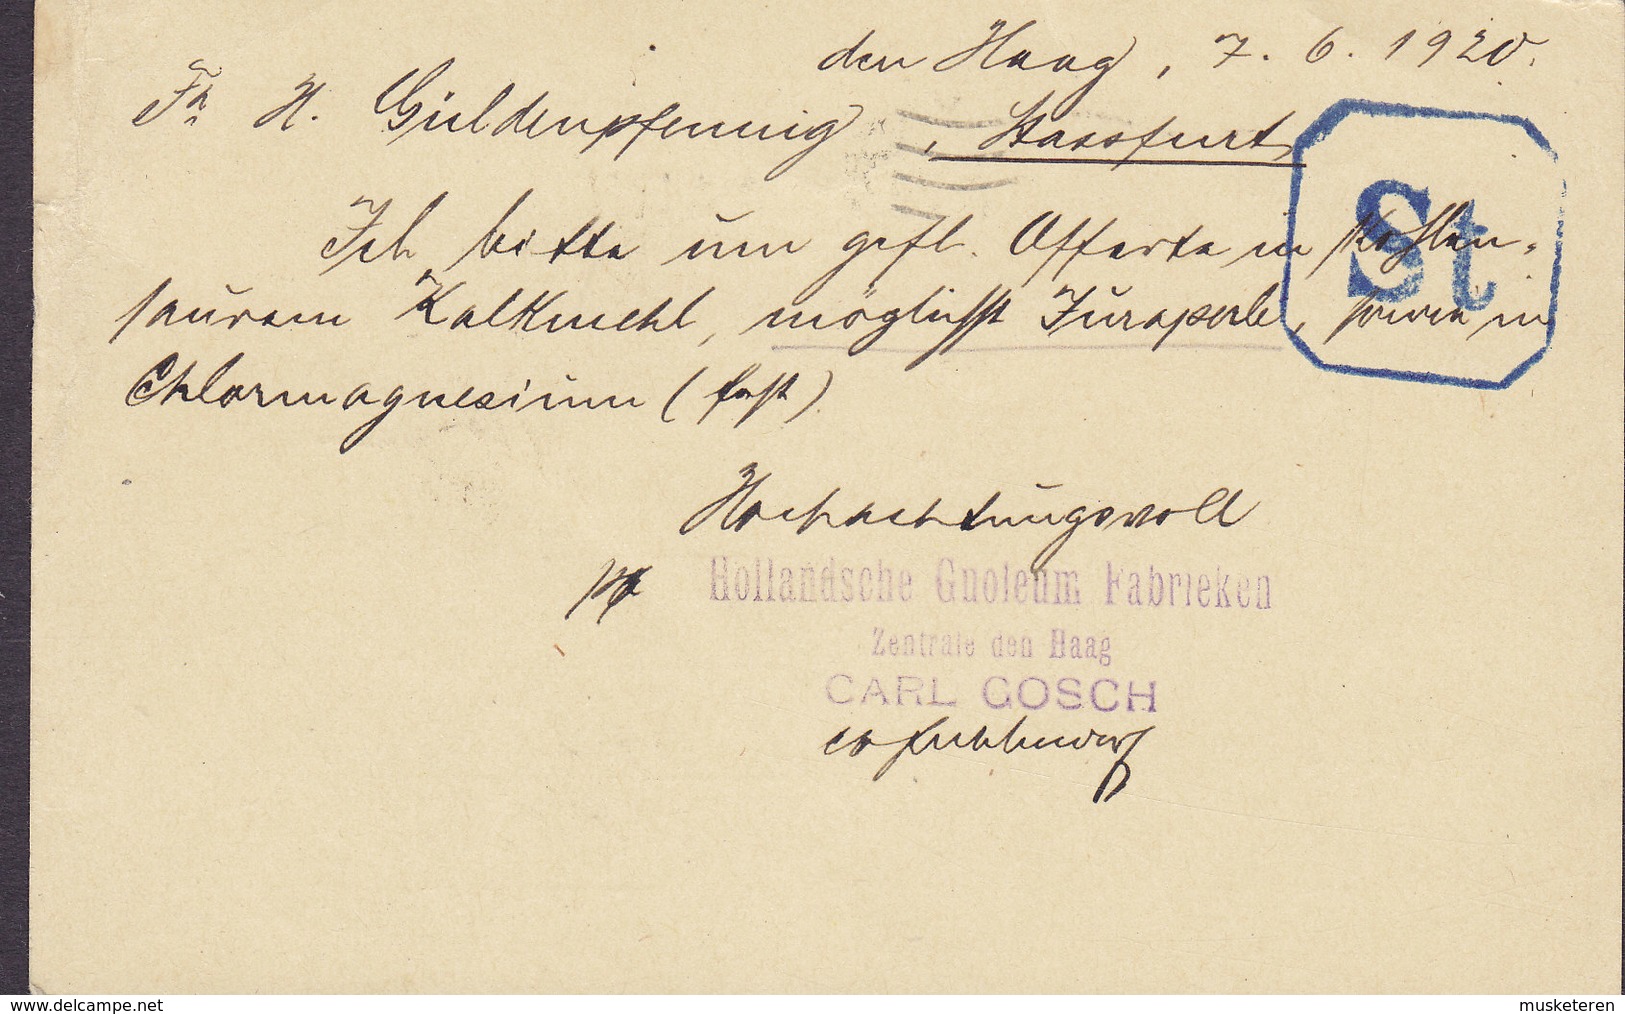 den Haag, 7. 6. 1920.
Fa H. Güldenpfennig, Stassfurt
St
Ich bitte um gefl. Offerte in Kohlen-
saurem Kalkmehl, möglichst Juraperle, sowie in
Chlormagnesium (fest).
Hochachtungsvoll
Hollandsche Guoleum Fabrieken
Zentrale den Haag
CARL GOSCH
www.delcampe.net
musketeren